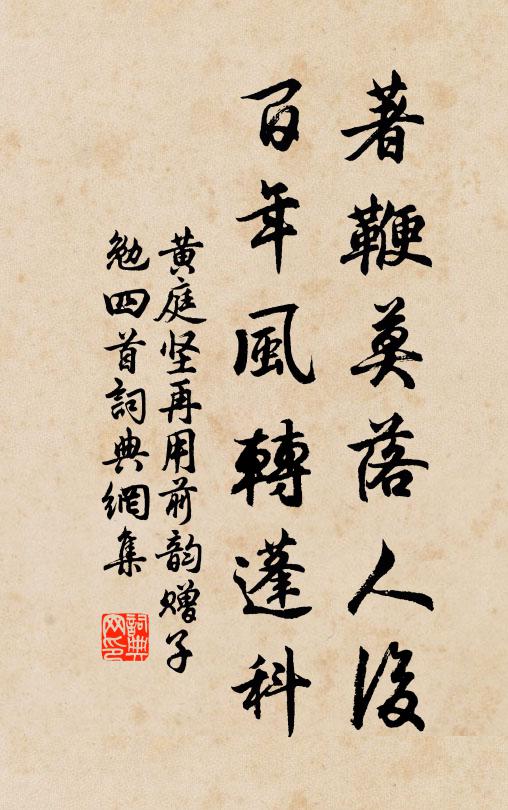 著鞭莫落人後
百年風轉蓬科
黄庭坚再用前韵赠子
勉四首詞典網集
詞典
网印